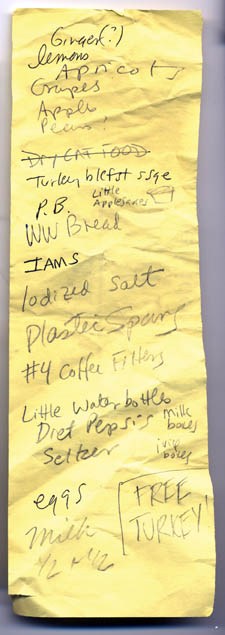 Ginger(?)
lemons
Apricots
Grapes
Apple
Pears!
Dry Cat Food
Turkey bkfst ssge
P.B. Little Applesauces
WW Bread
IAMS
Iodized Salt
Plastic Spoons
#4 Coffee Filters
Little Water bottles
Diet Pepsis Milk boxes
Seltzer juice boxes
eggs
Milk
1/2 + 1/2
FREE
TURKEY!